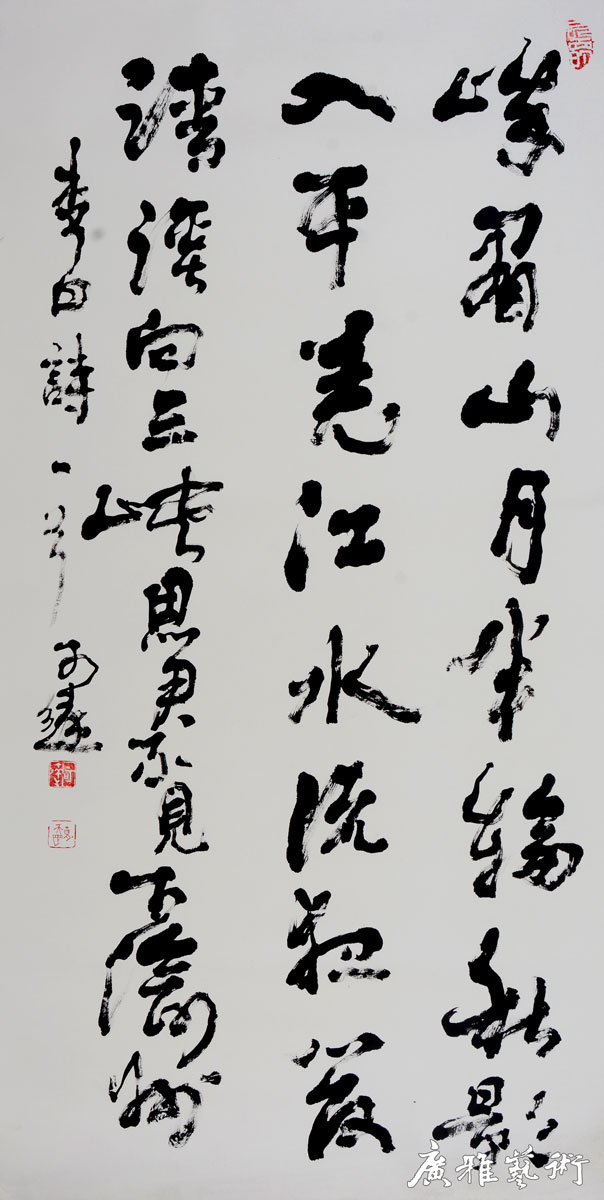 峨眉山月半輪秋影
入平羌江水流夜發
清溪向三峽思君不見下渝州
李白詩一首
廣雅藝術